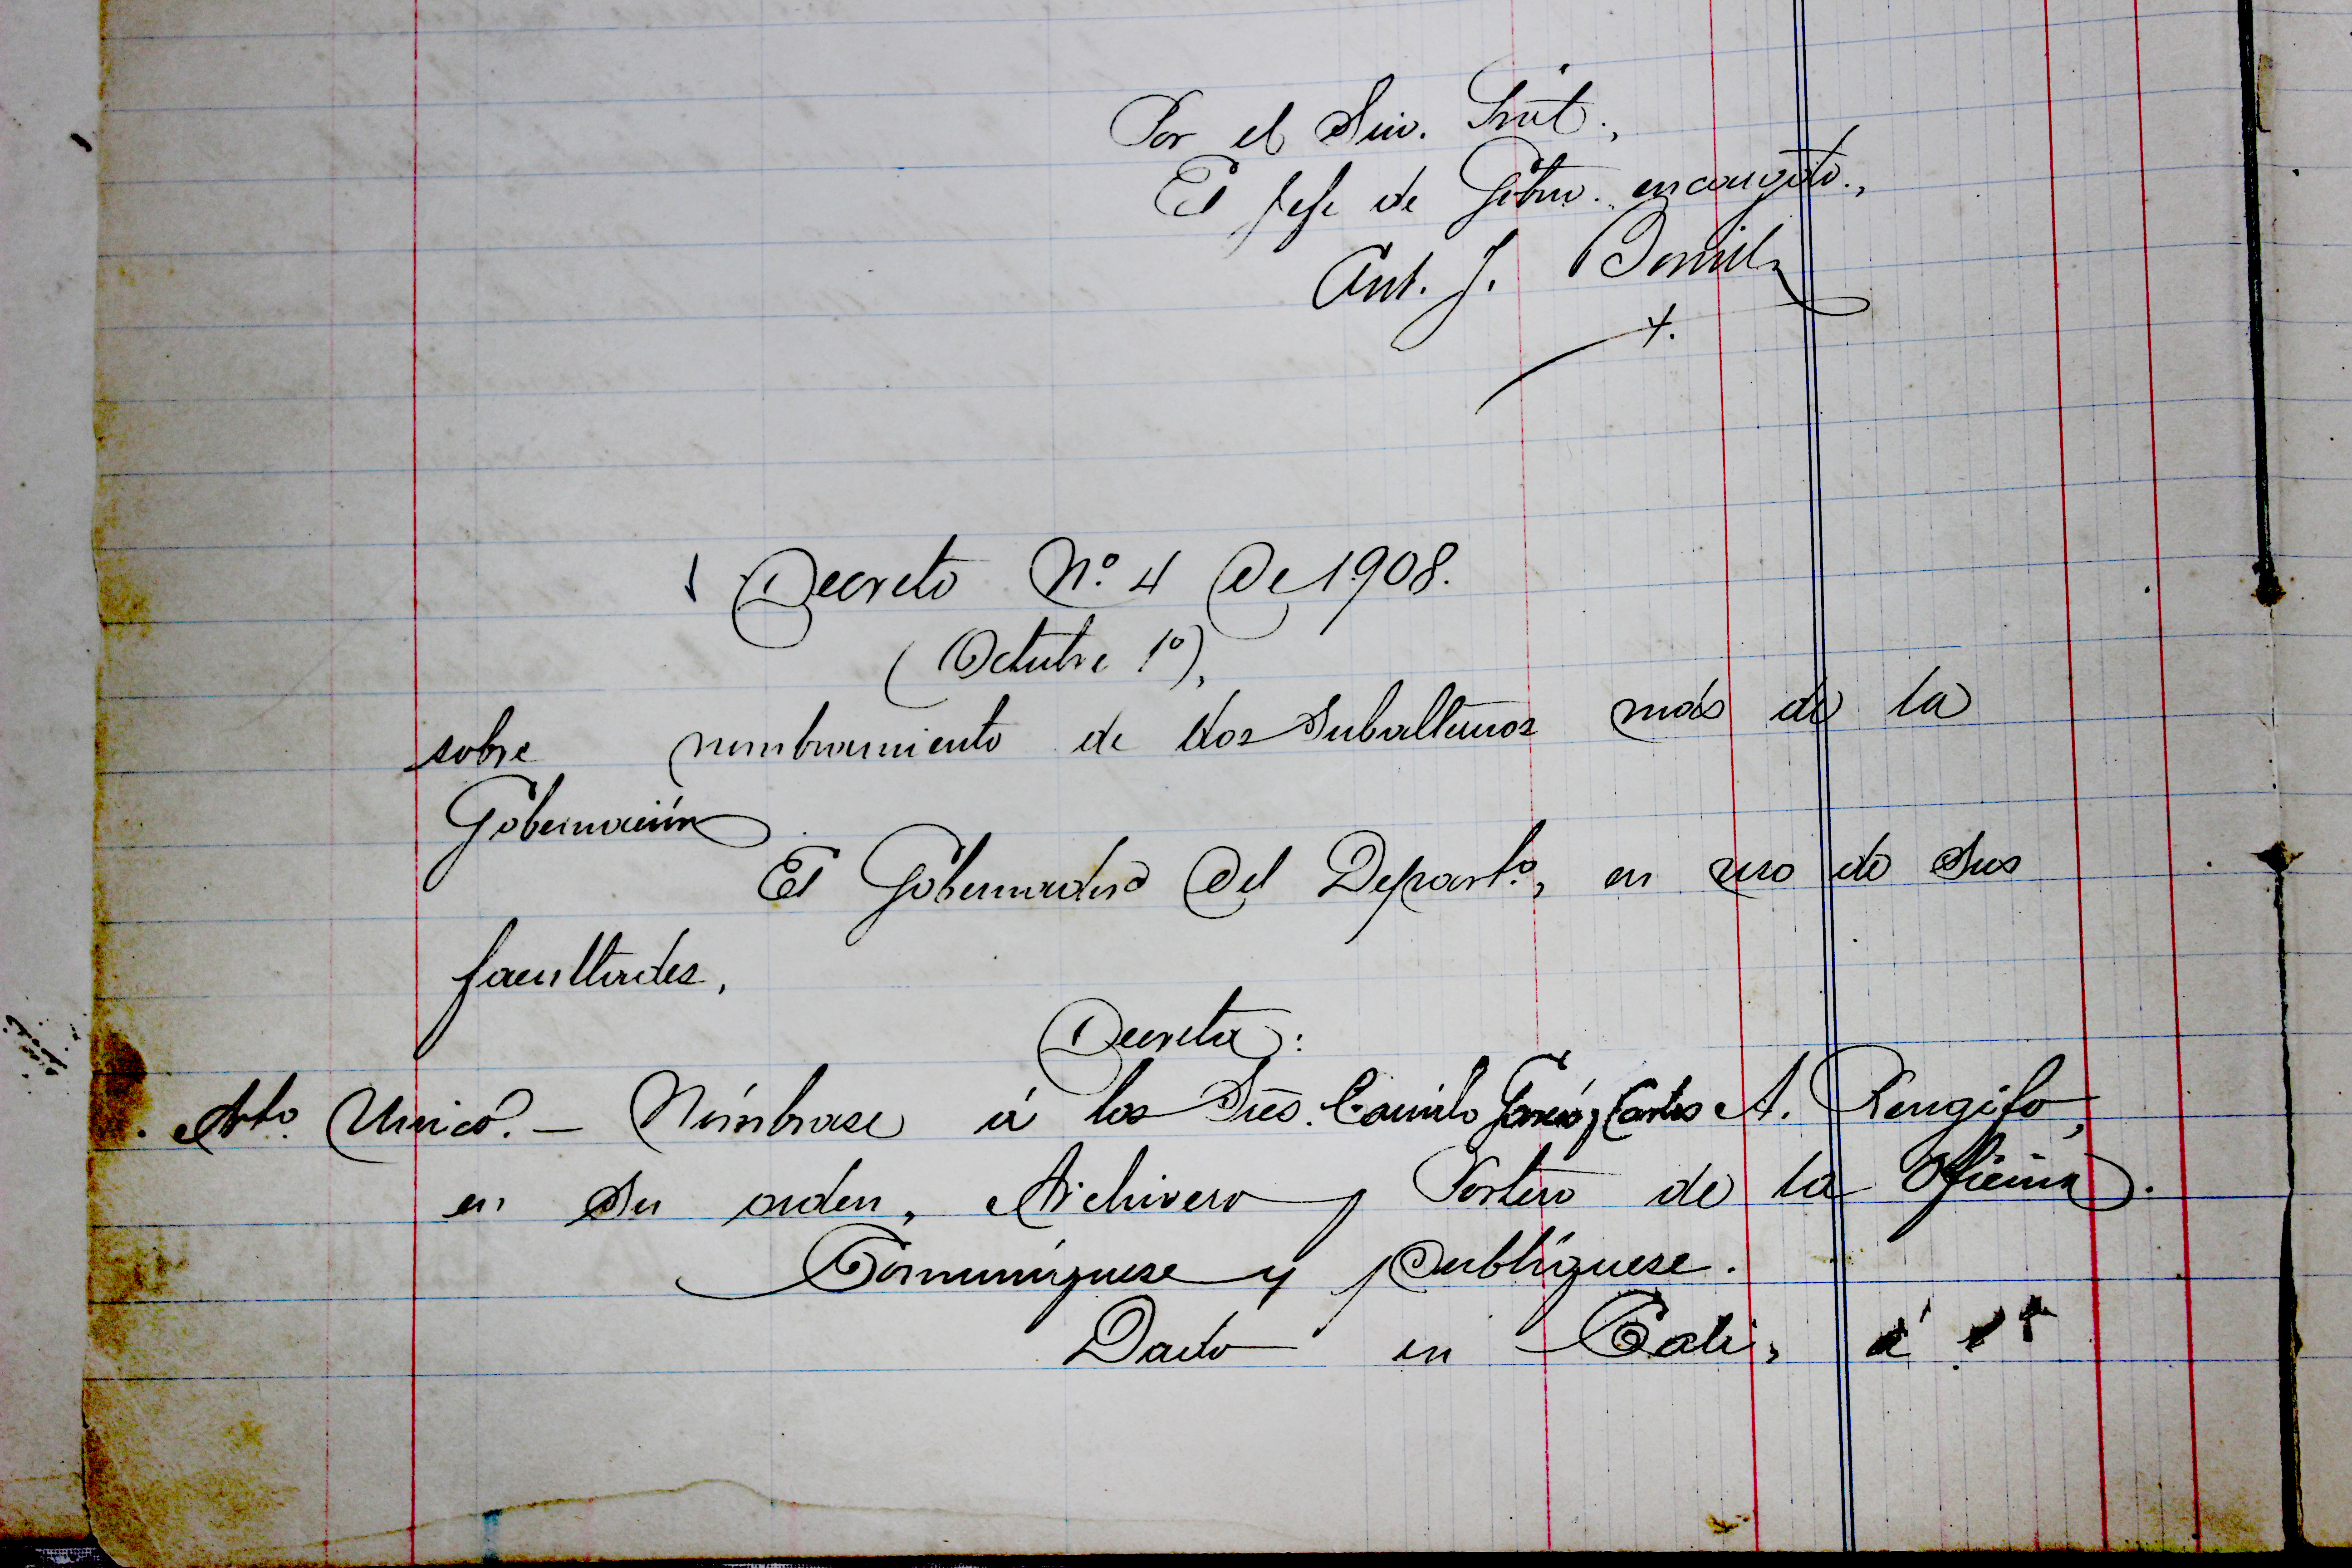 Por el Srio. Grāl.,
El Jefe de Gobno. encargdo.,
Ant. J. Bonilla
Decreto Nº. 4 De 1908.
(Octubre 1º),
sobre nombramiento de dos Subalternos más de la
Gobernación
El Gobernador Del Departº, en uso de sus
facultades,
Decreta:
Arto. Unico. — Nómbrase á los Sres. Camilo García y Carlos A. Rengifo,
en su orden, Archivero y Portero de la Oficina.
Comuníquese y publíquese.
Dado en Cali, á 1º